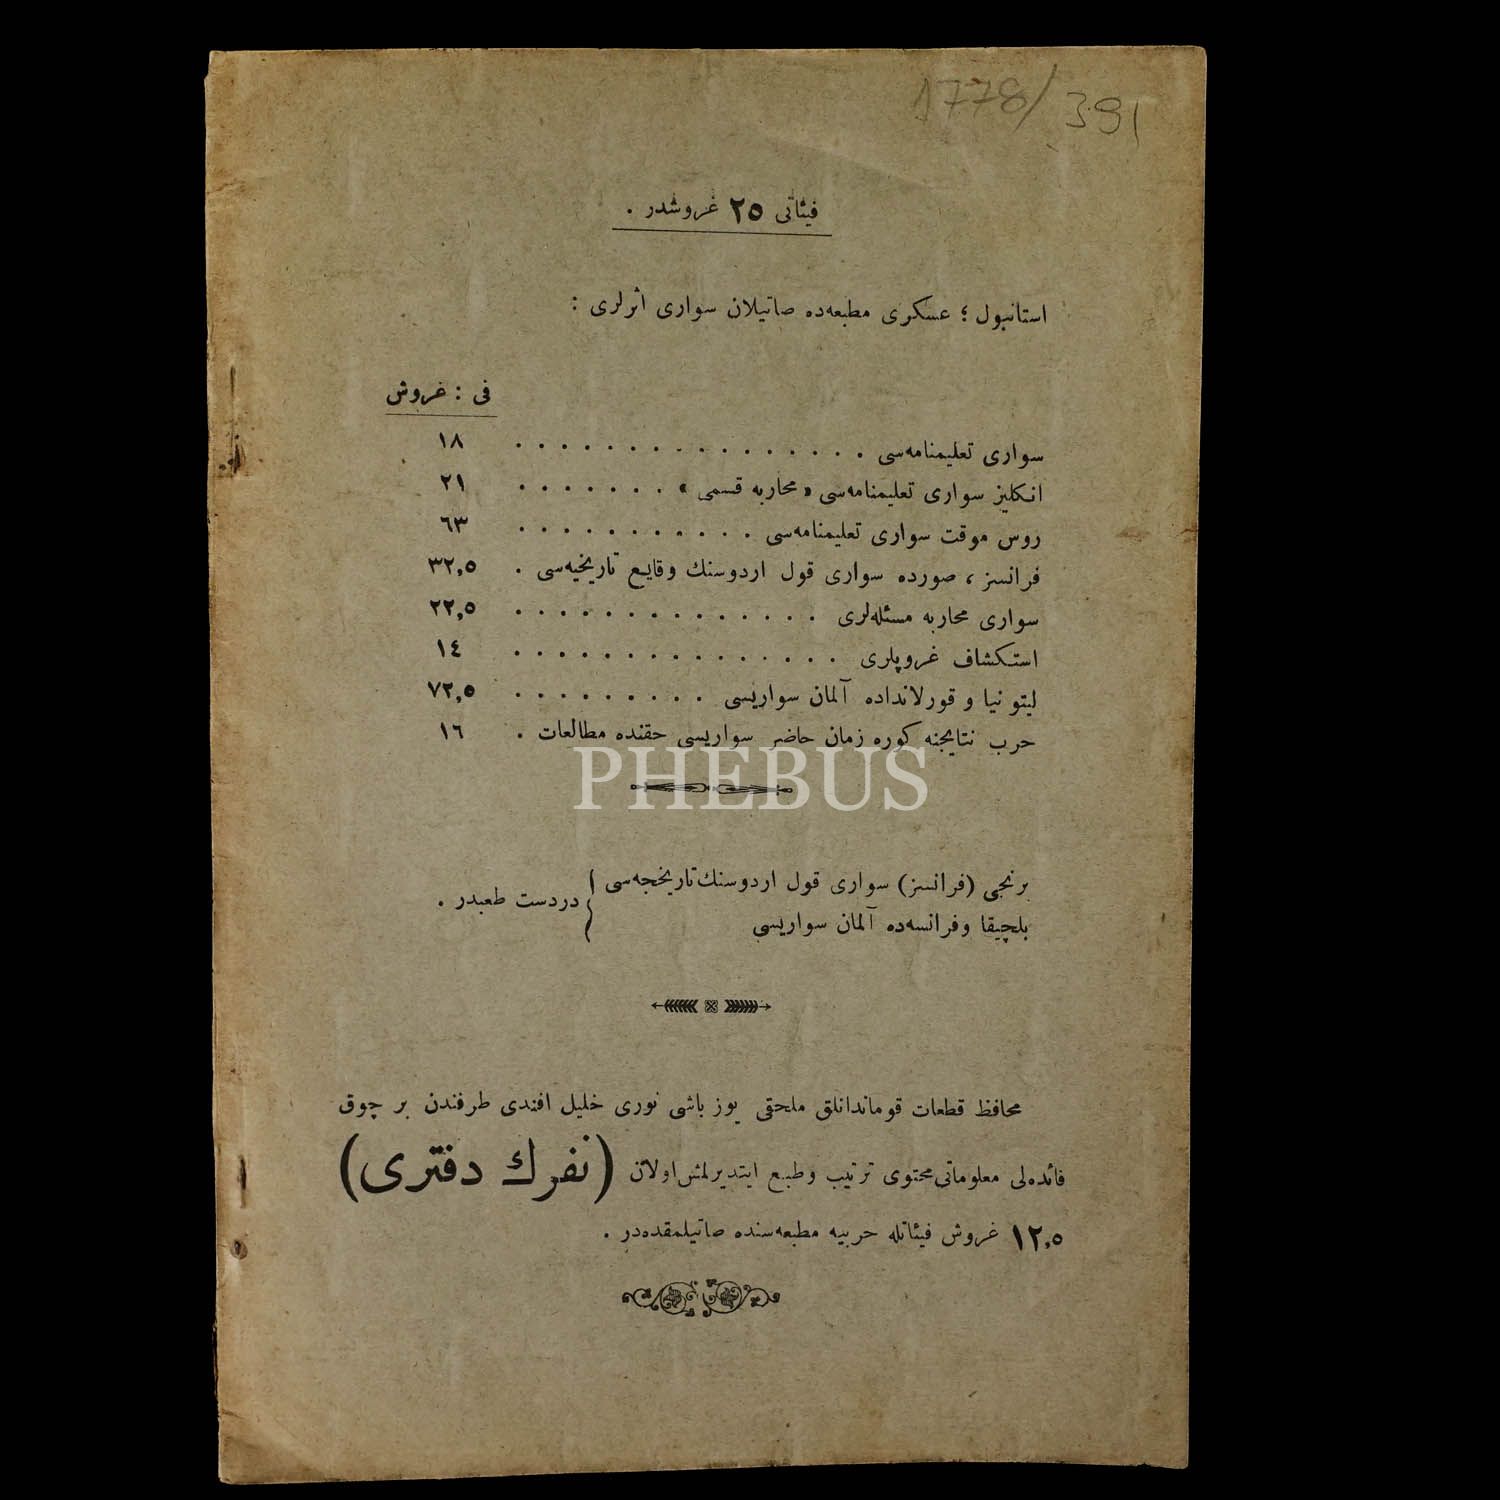 1778/391
فیئاتی ٢٥ غروشدر .
استانبول ؛ عسکری مطبعه‌ده صاتیلان سواری اثرلری :
فی : غروش
سواری تعلیمنامه‌سی . . . . . . . . . . . . . . . . ١٨
انکلیز سواری تعلیمنامه‌سی « محاربه قسمی » . . . . . . . ٢١
روس موقت سواری تعلیمنامه‌سی . . . . . . . . . . . ٦٣
فرانسز ، صورده سواری قول اردوسنك وقایع تاریخیه‌سی . ٣٢,٥
سواری محاربه مسئله‌لری . . . . . . . . . . . . . . ٢٢,٥
استکشاف غروپلری . . . . . . . . . . . . . . . ١٤
لیتونیا و قورلانداده آلمان سواریسی . . . . . . . . . ٧٢,٥
حرب نتایجنه کوره زمان حاضر سواریسی حقنده مطالعات . ١٦
PHEBUS
برنجی (فرانسز) سواری قول اردوسنك تاریخجه‌سی
بلچیقا و فرانسه‌ده آلمان سواریسی
} دردست طبعدر .
محافظ قطعات قوماندانلق ملحقی یوز باشی نوری خلیل افندی طرفندن بر چوق
فائده‌لی معلوماتی محتوی ترتیب و طبع ایتدیرلمش اولان (نفرك دفتری)
١٢,٥ غروش فیئاتله حربیه مطبعه‌سنده صاتیلمقده‌در .